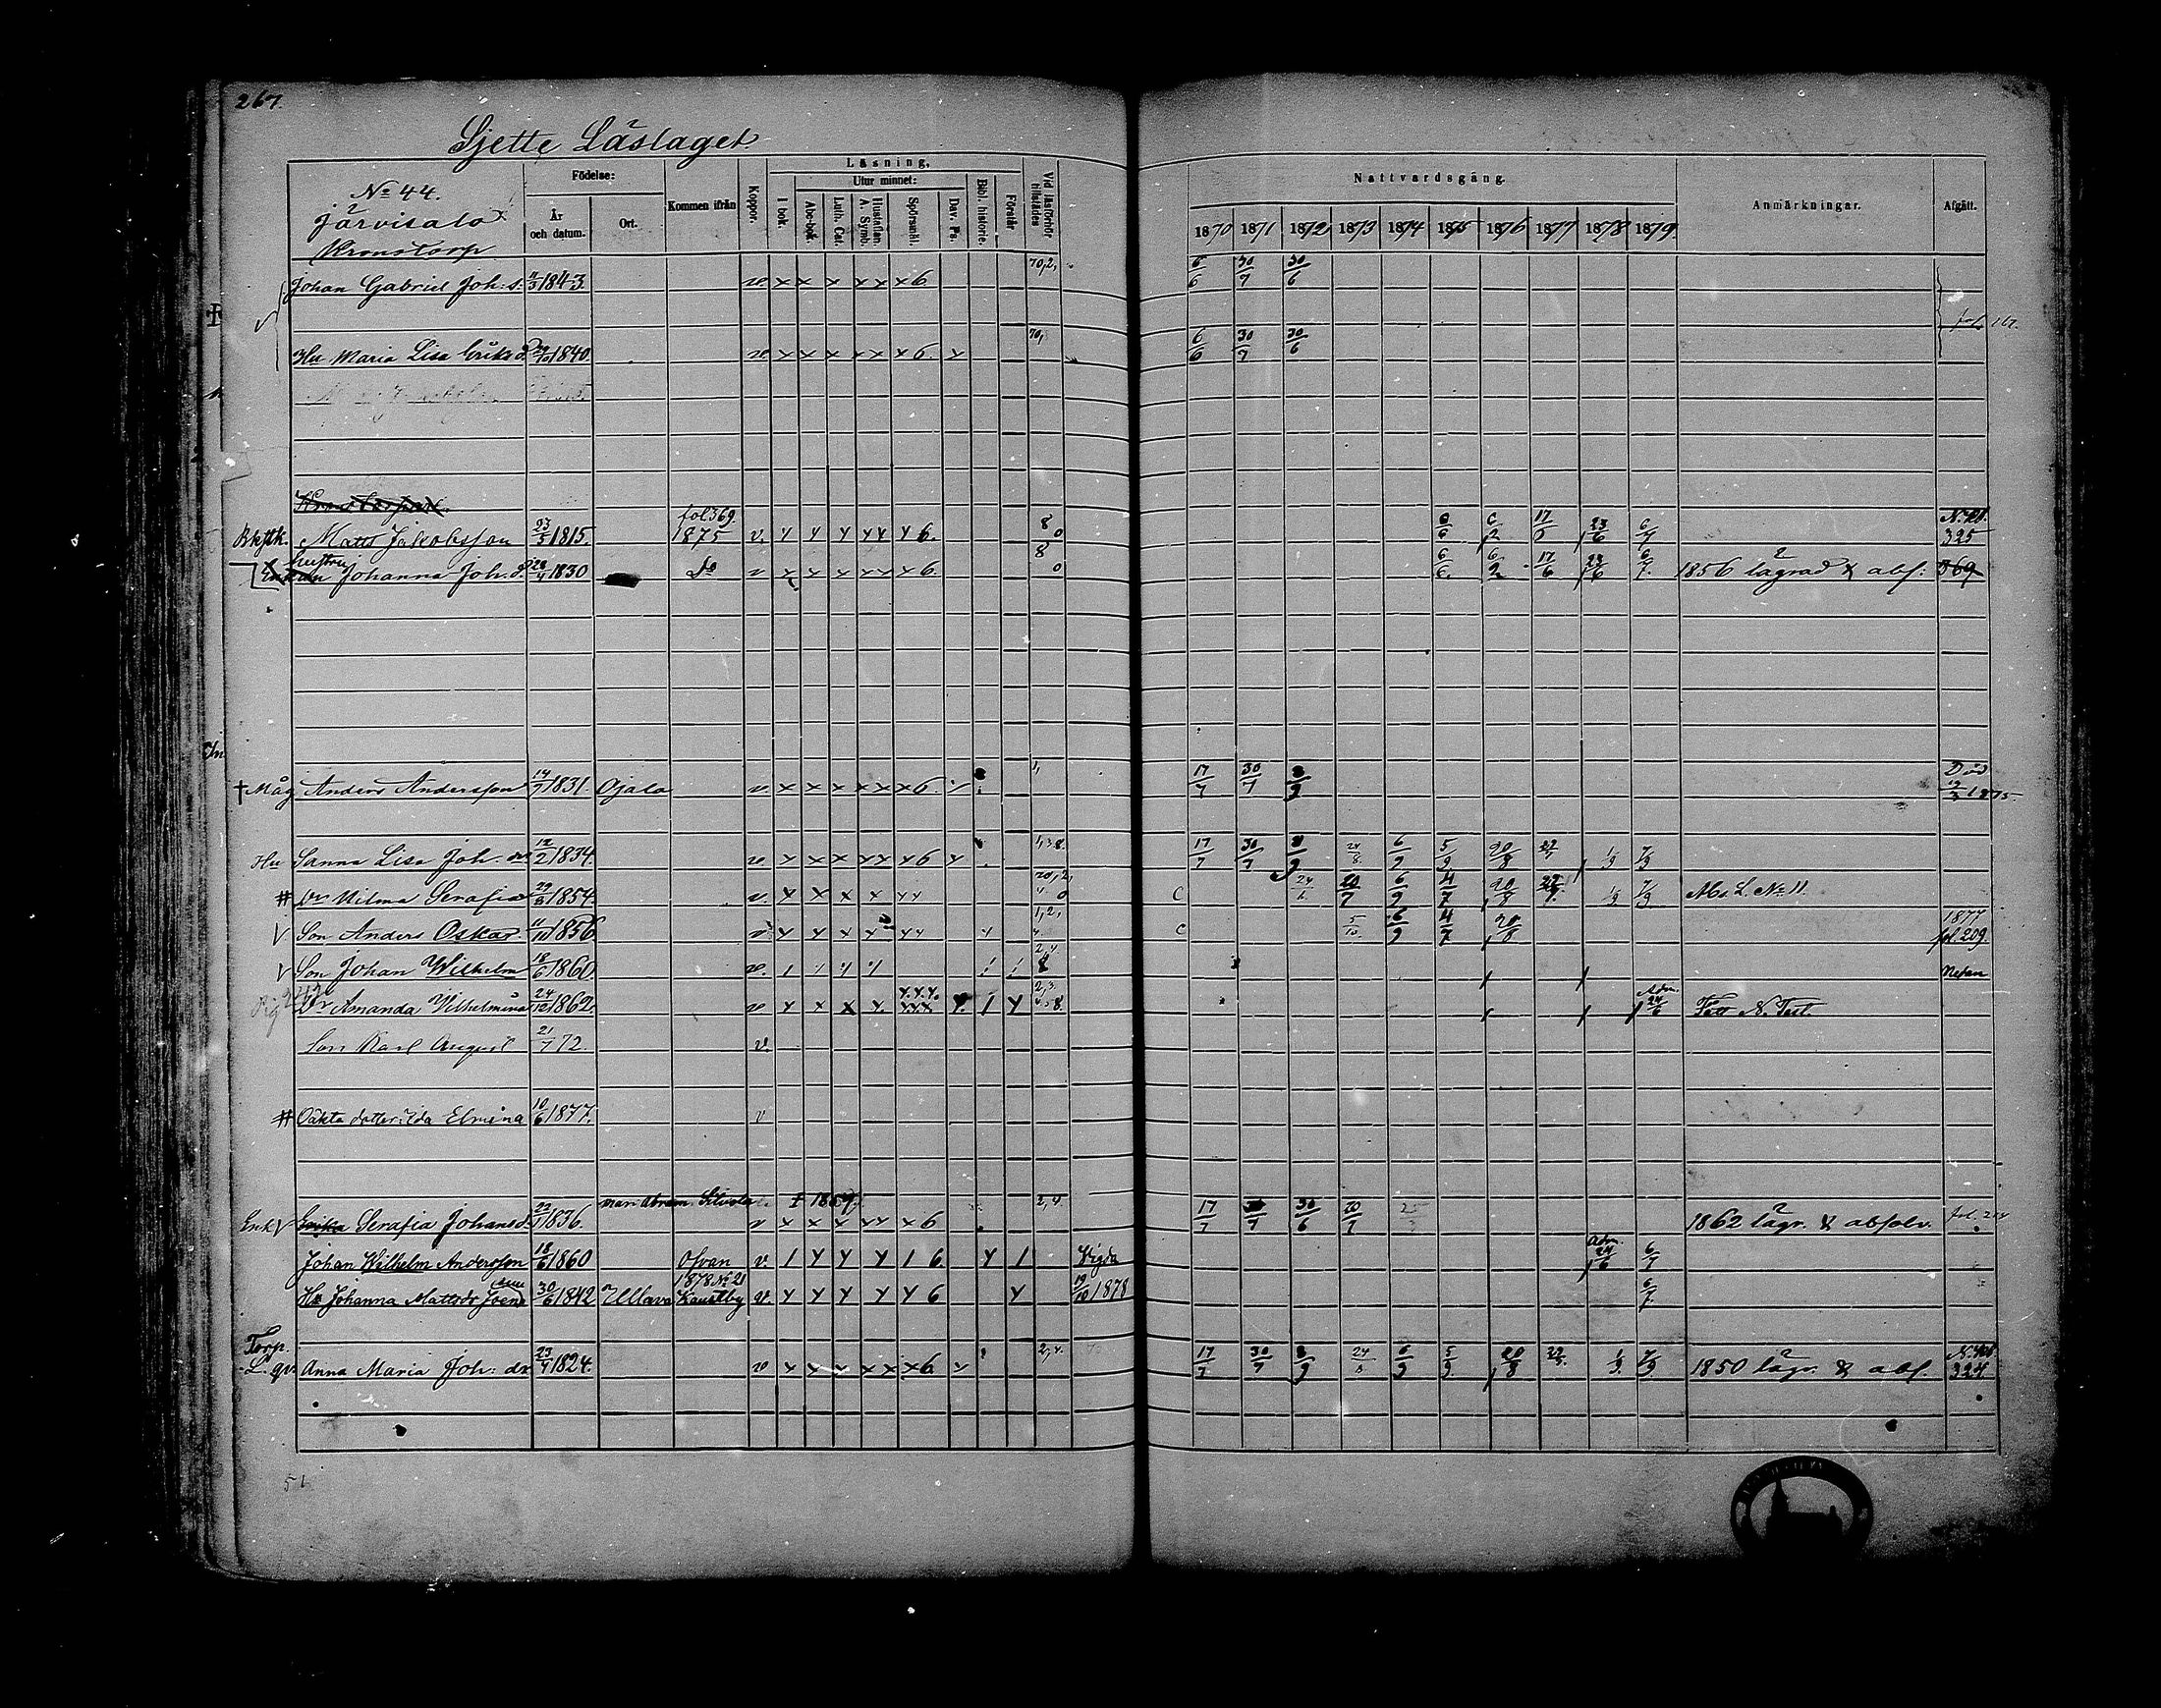 267
Sjette Läslaget
No 44.
Järvisalo
Kronotorp
Födelse:
År och datum.
Ort.
Kommen ifrån
Koppor.
Läsning,
I bok.
Utur minnet:
Abc-bok.
Luth. Cat.
Hustaflan. A. Symb.
Spörsmål.
Dav. Ps.
Bibl. historie.
Förstår
Vid läsförhör tillstädes
Nattvardsgång.
1870 1871 1872 1873 1874 1875 1876 1877 1878 1879
Anmärkningar.
Afgått.
Johan Gabriel Joh. s. 1843 v x x x x x x 6 70,2, 6/6 30/7 30/6
Hu Maria Lisa Eriks d. 1840 v x x x x x x 6. x 70, 6/6 30/7 30/6
Matts Jakobsson 23/5 1815. fol 369. 1875 v. 6. 8 0 17/6 23/6 6/7 325
hustru
Johanna Joh. d. 28/4 1830 Do v 6. 8 0 6/6 6/2 17/6 23/6 6/7 1856 lagrad & abs: 369
† Måg Anders Andersson 14/7 1831. Ojala v x x x x x x 6. 1, 17/7 30/7 8/9 Död 1875
Hu Sanna Lisa Joh. dr 12/2 1834. v x x x x x x 6 x 1,3 8. 17/7 30/7 8/9 24/8 6/9 5/9 20/8 22/7 1/9 7/9
# Dr Wilma Serafia 29/3 1854. v. x x x x x x 70,2, 4. 0 C 24/6 20/7 6/9 4/7 20/8 22/7 1/9 7/9 Ms. L. No 11.
V Son Anders Oskar. 11/11 1856 v 1,2, 4. C 5/10 6/9 4/7 20/8 1877 fol. 209.
V Son Johan Wilhelm 18/6 1860. v. 2,4 8 Nedan
Dr Amanda Vilhelmina 24/12 1862. v 2,3. 4,8. Adm. 24/6 Fått N. Test.
Son Karl August 21/7 72. v.
# Oäkta dotter Ida Elmina 10/6 1877. v
man Abram Silvola † 1869.
Enk V Erika Serafia Johansd. 22/1 1836. v x x x x x x 6 2,4. 17/7 30/7 30/6 20/7 1862 lagr. & absolv.
Johan Wilhelm Andersson 18/6 1860 Ofvan v. 1 6 1 Vigda Adm. 24/6 6/7
Hu Johanna Mattsdr 30/6 1842 Ullava 1878 No 21 Kaustby v. 6 19/10 1878 6/7.
Torp.
L. qv. Anna Maria Joh: dr 23/1 1824. v x x x x x x 6. 2,4. 17/7 30/7 8/9 24/8 6/9 5/9 20/8 22/7 1/9 7/9 1850 lägr. & abs. 324
51